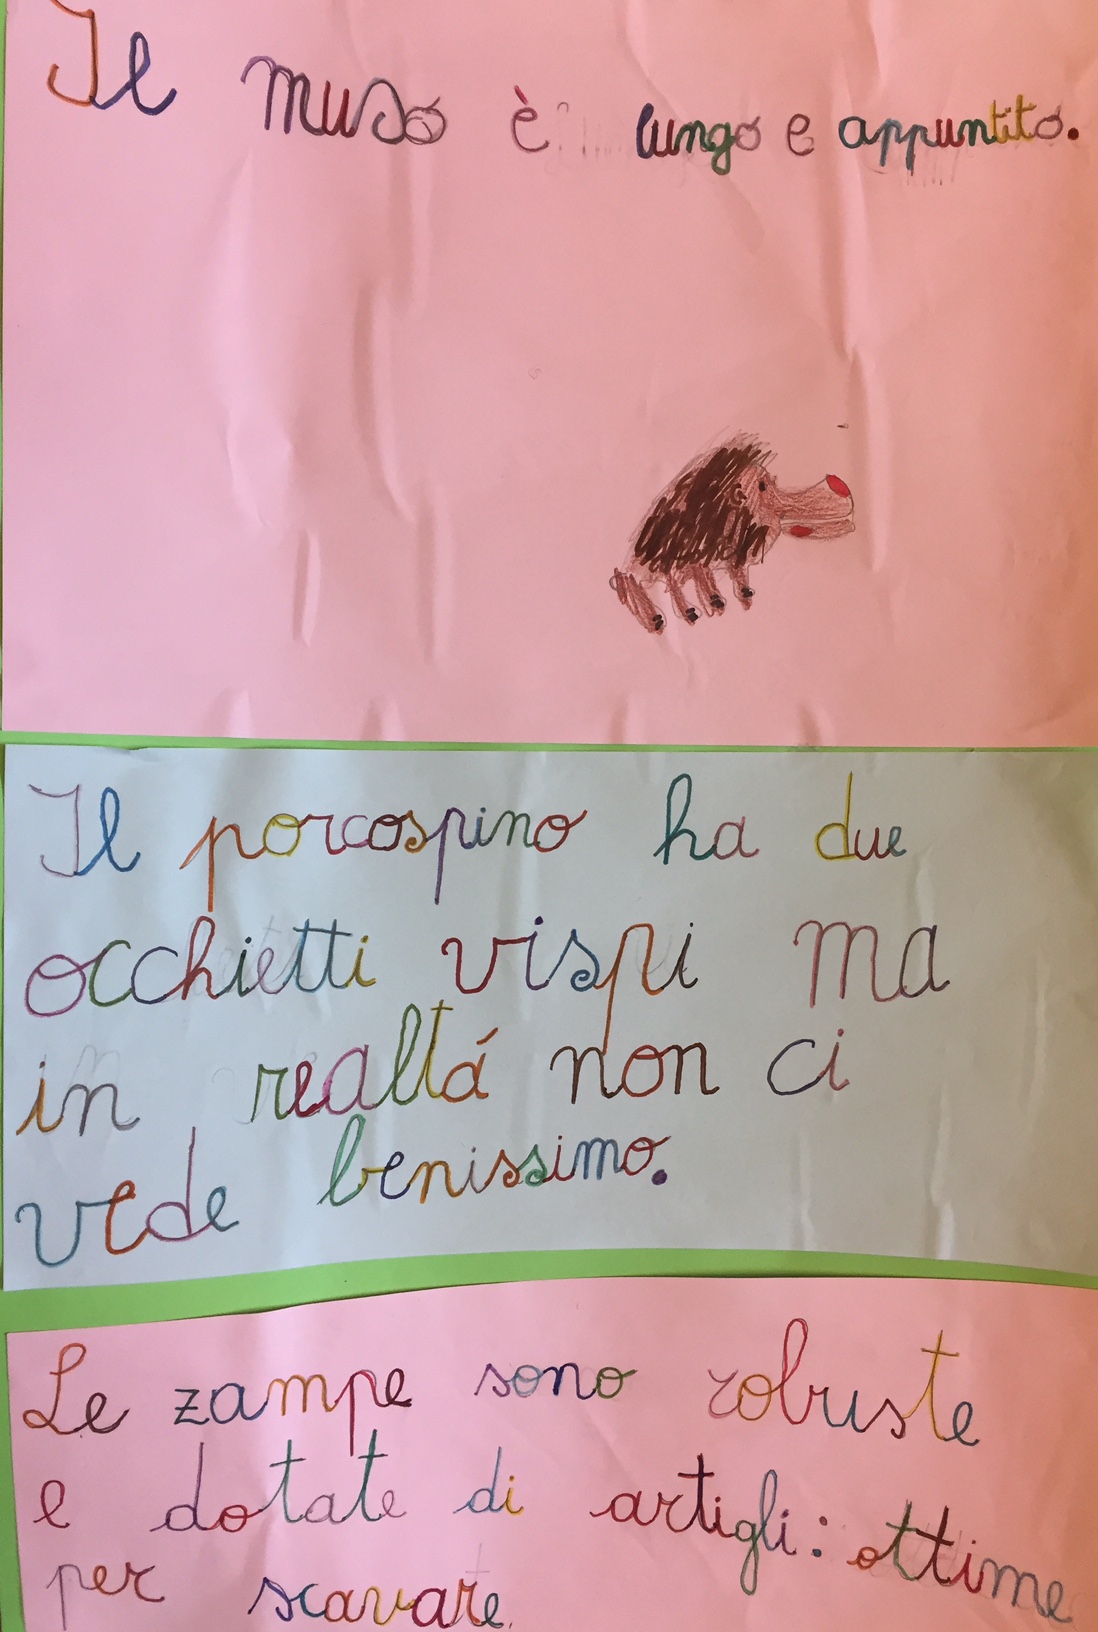 Il muso è lungo e appuntito.
Il porcospino ha due
occhietti vispi ma
in realtá non ci
vede benissimo.
Le zampe sono robuste
e dotate di artigli: ottime
per scavare.